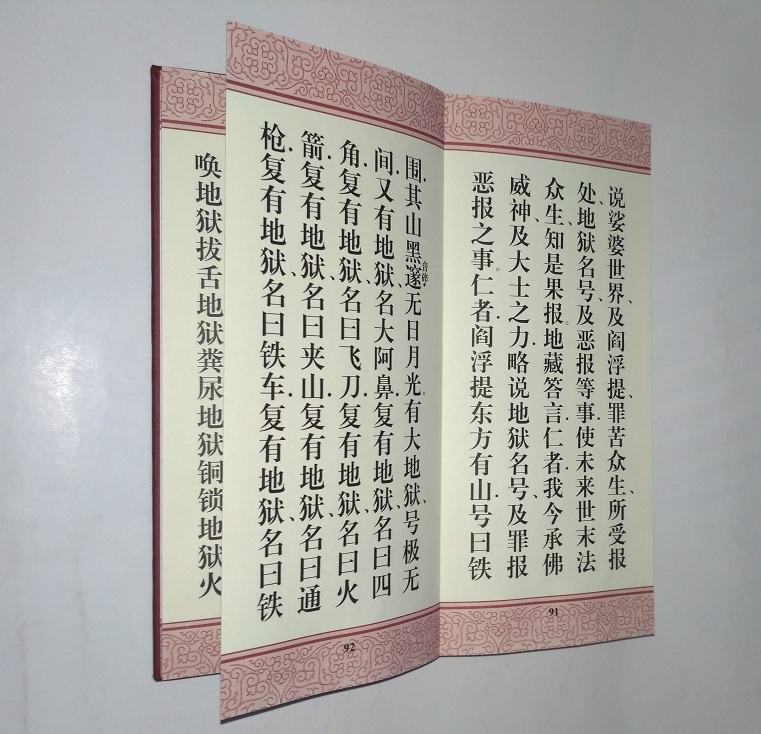 说娑婆世界、及阎浮提、罪苦众生、所受报
处、地狱名号、及恶报等事.使未来世末法
众生、知是果报。地藏答言.仁者.我今承佛
威神、及大士之力.略说地狱名号、及罪报
恶报之事。仁者.阎浮提东方有山.号曰铁
91
围.其山黑邃音碎.无日月光。有大地狱、号极无
间.又有地狱、名大阿鼻.复有地狱、名曰四
角.复有地狱、名曰飞刀.复有地狱、名曰火
箭.复有地狱、名曰夹山.复有地狱、名曰通
枪.复有地狱、名曰铁车.复有地狱、名曰铁
92
唤地狱拔舌地狱粪尿地狱铜锁地狱火